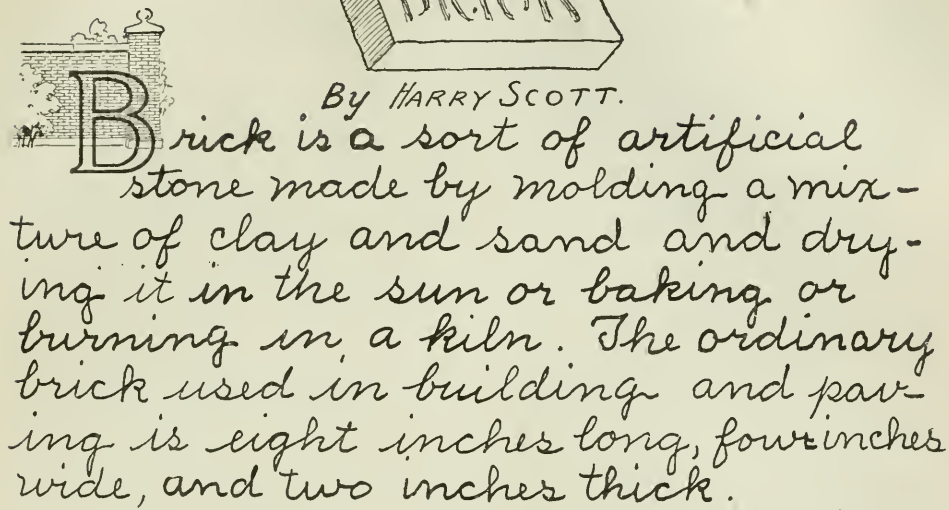 BRICK
By HARRY SCOTT.
Brick is a sort of artificial
stone made by molding a mix-
ture of clay and sand and dry-
ing it in the sun or baking or
burning in a kiln. The ordinary
brick used in building and pav-
ing is eight inches long, four inches
wide, and two inches thick.